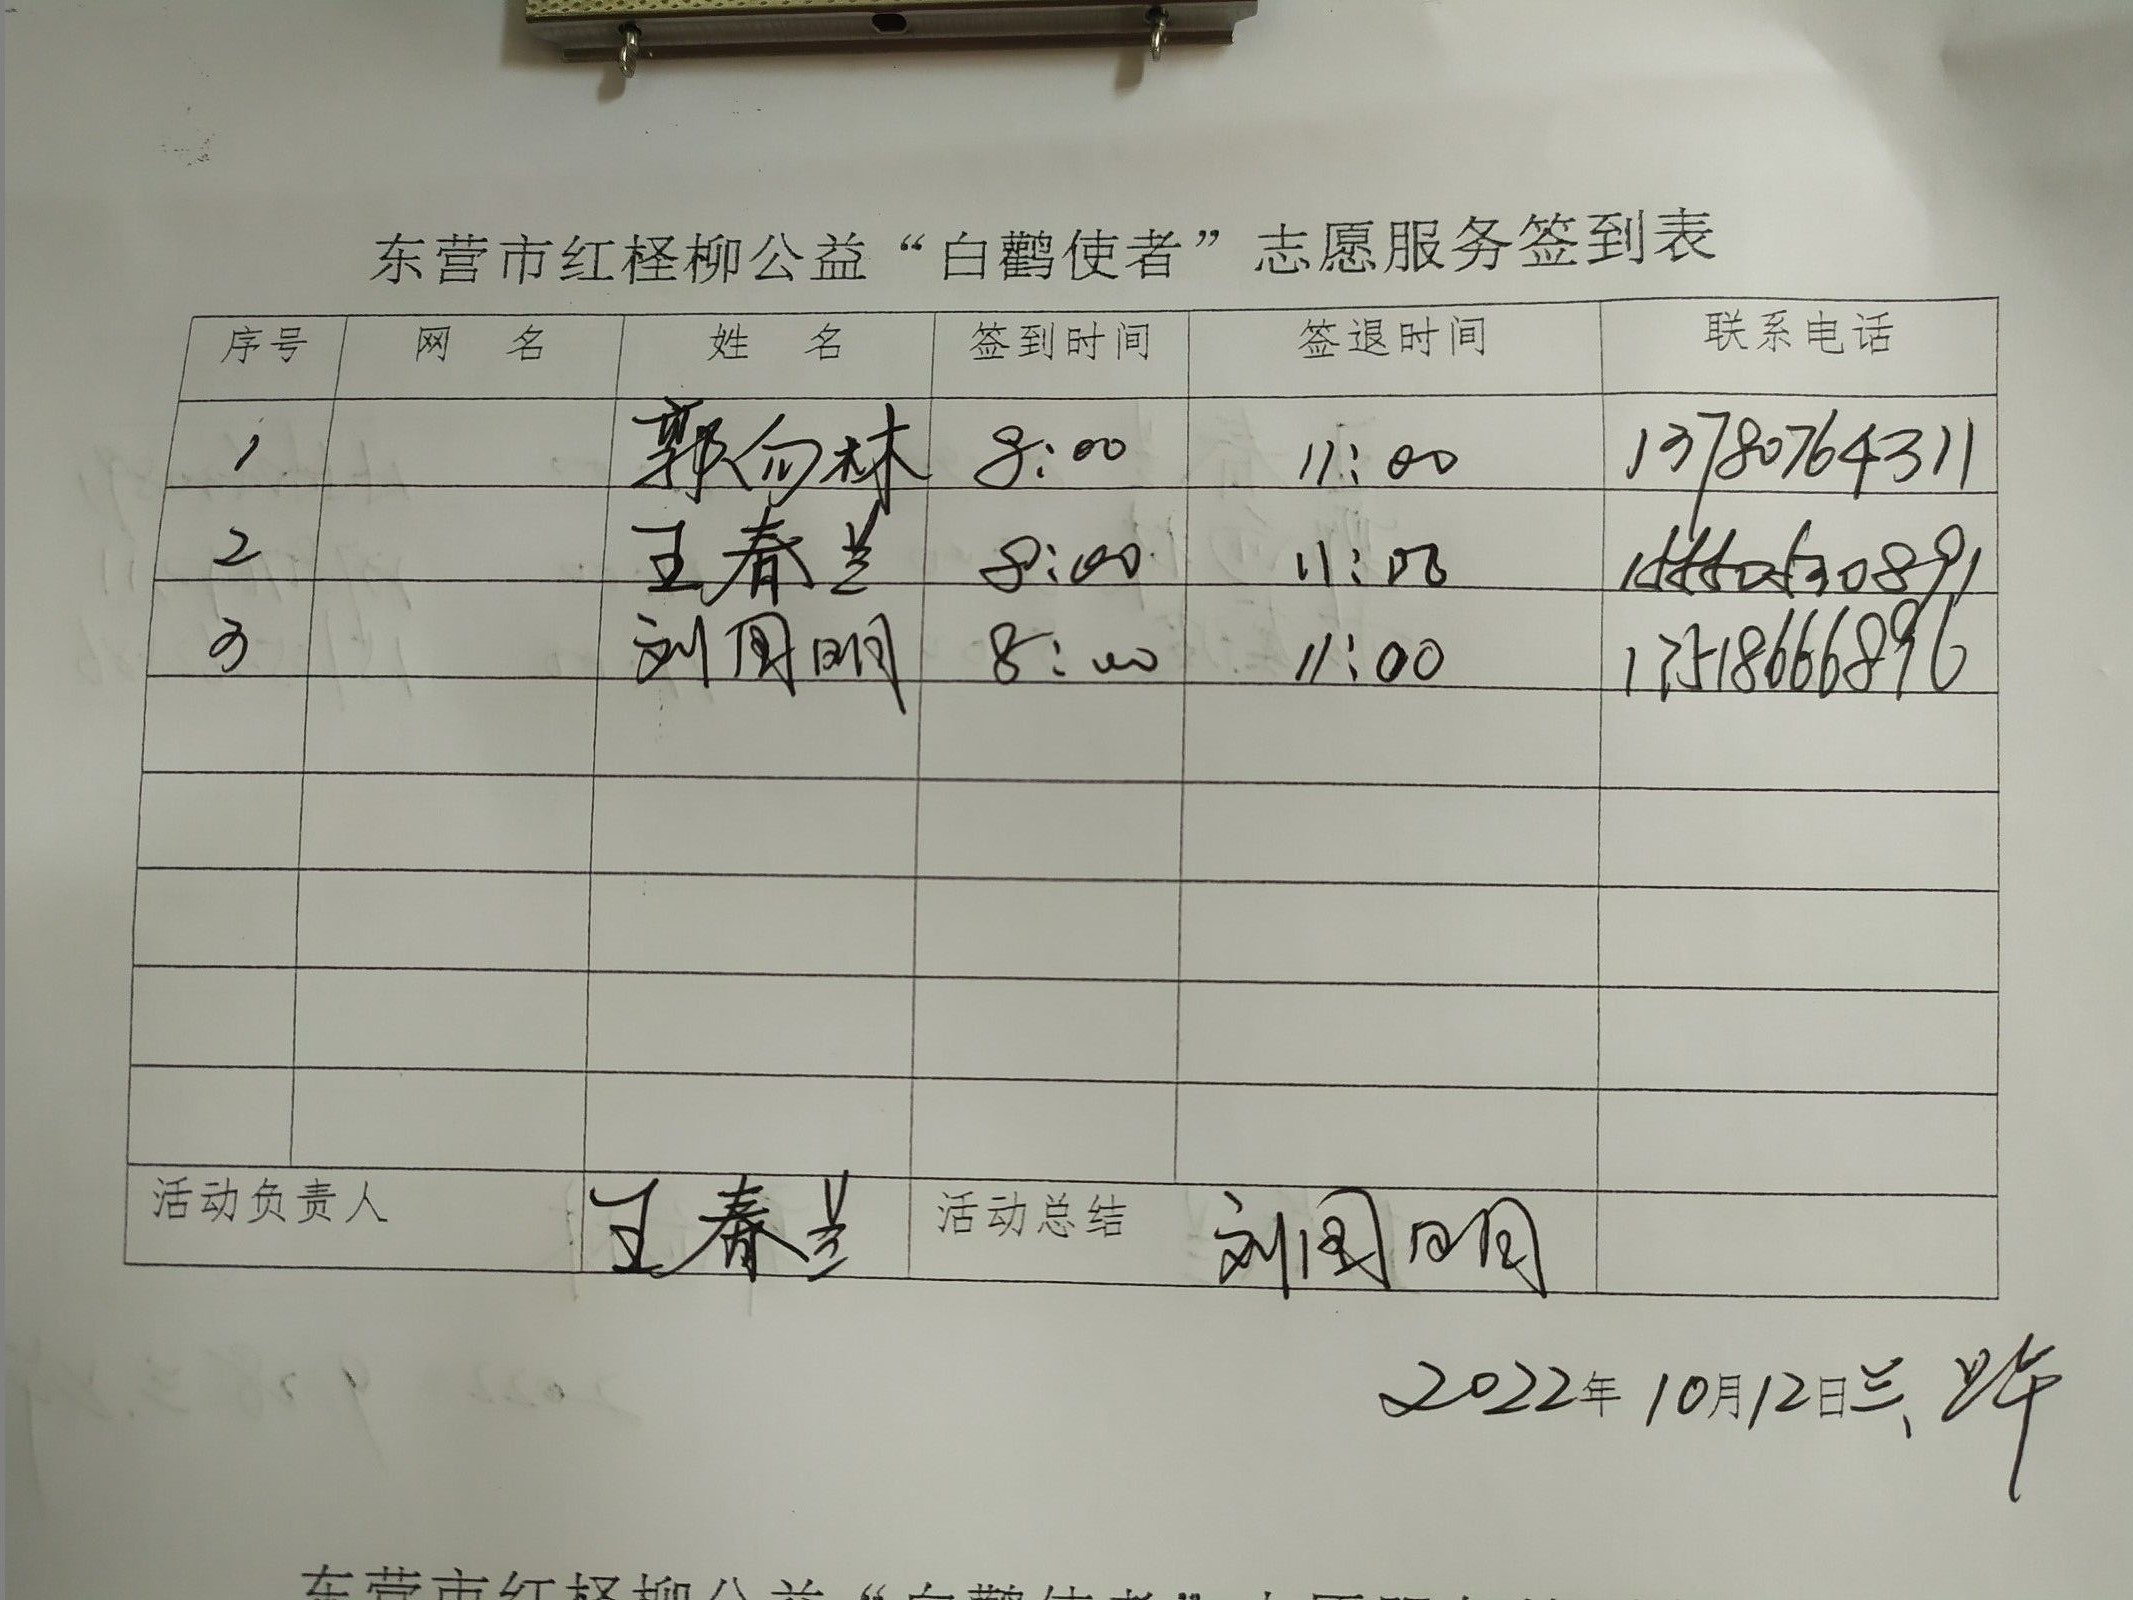 东营市红柽柳公益“白鹳使者”志愿服务签到表
序号 网 名 姓 名 签到时间 签退时间 联系电话
1 郭勿林 8:00 11:00 13780764311
2 王春兰 8:00 11:00
3 刘国明 8:00 11:00
活动负责人 王春兰 活动总结 刘国明
2022年10月12日 三、上午
东营市红柽柳公益“白鹳使者”志愿服务